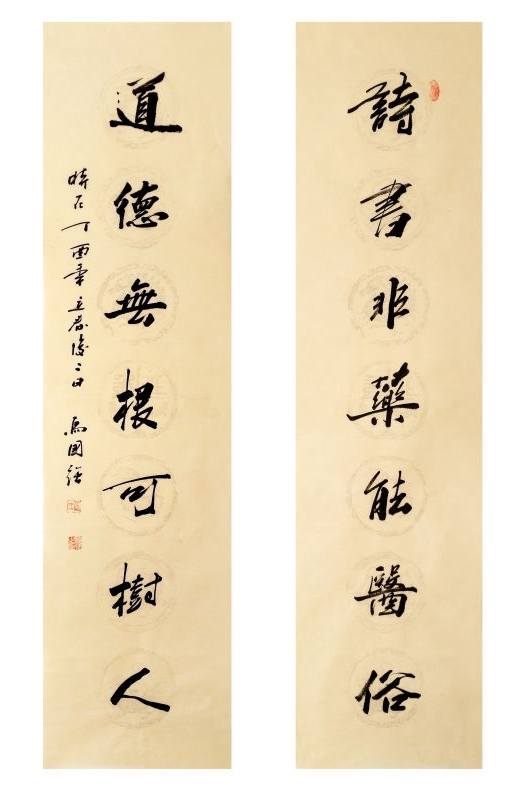 詩書非藥能醫俗
道德無根可樹人
時在丁酉年立春後二日 馬國強